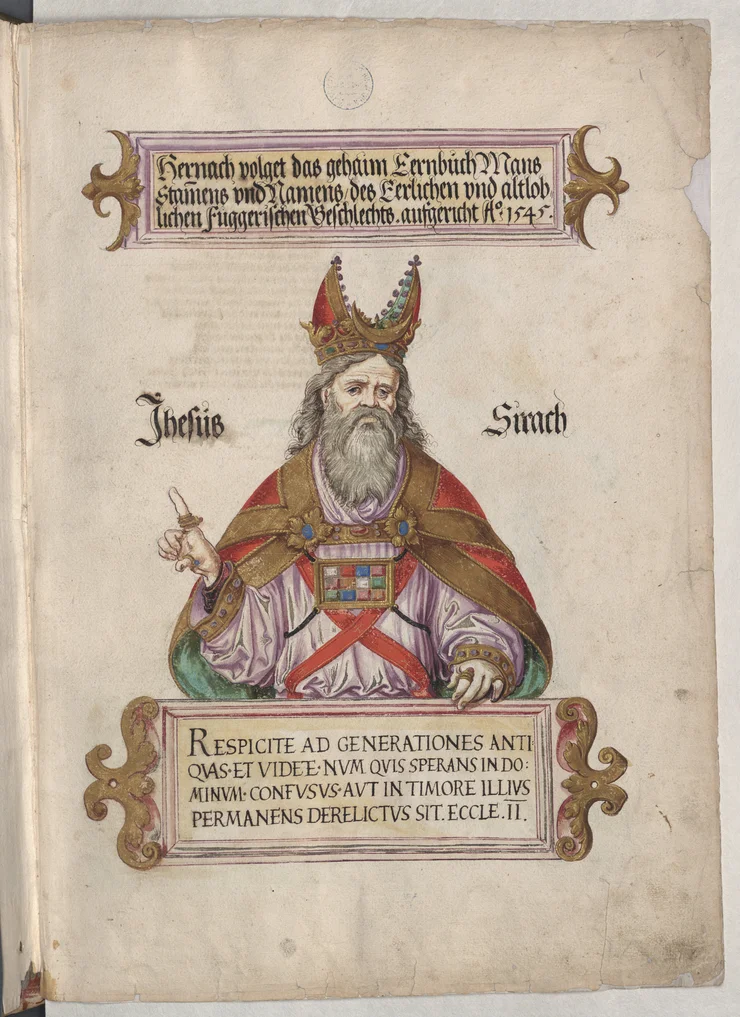 Hernach volget das gehaim Eernbuch Mans
Stam̄ens vnd Namens, des Eerlichen vnd altlob
lichen Fuggerischen Geschlechts. aufgericht Aº. 1545.
Jhesüs Sirach
RESPICITE AD GENERATIONES ANTI
QVAS·ET VIDETE·NVM QVIS SPERANS IN DO:
MINVM·CONFVSVS·AVT IN TIMORE ILLIVS
PERMANENS DERELICTVS SIT. ECCLE. II.